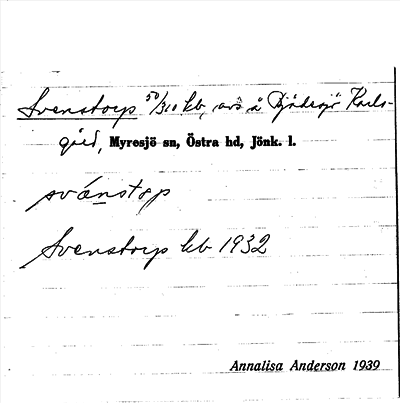 Svenstorp 50/310 kb, avs å Bjädesjö Karls-
gård, Myresjö sn, Östra hd, Jönk. l.
svánstɔp
Svenstorp kb 1932
Annalisa Anderson 1939